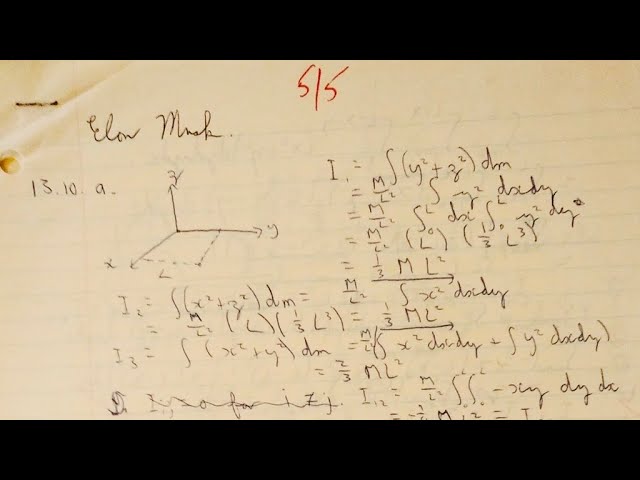 5/5
Elon Musk.
13.10. a.
z
y
x
L
I₁ = ∫(y²+z²) dm
= M/L² ∫ y² dxdy
= M/L² ∫₀ᴸ dx ∫₀ᴸ y² dy
= M/L² (L) (1/3 L³)
= 1/3 ML²
I₂ = ∫(x²+z²) dm = M/L² ∫ x² dxdy
= M/L² (L)(1/3 L³) = 1/3 ML²
I₃ = ∫(x²+y²) dm = M/L² (∫ x² dxdy + ∫ y² dxdy)
= 2/3 ML²
for i≠j. I₁₂ = M/L² ∫₀ᴸ∫₀ᴸ -xy dy dx
= -1/4 ML² = I